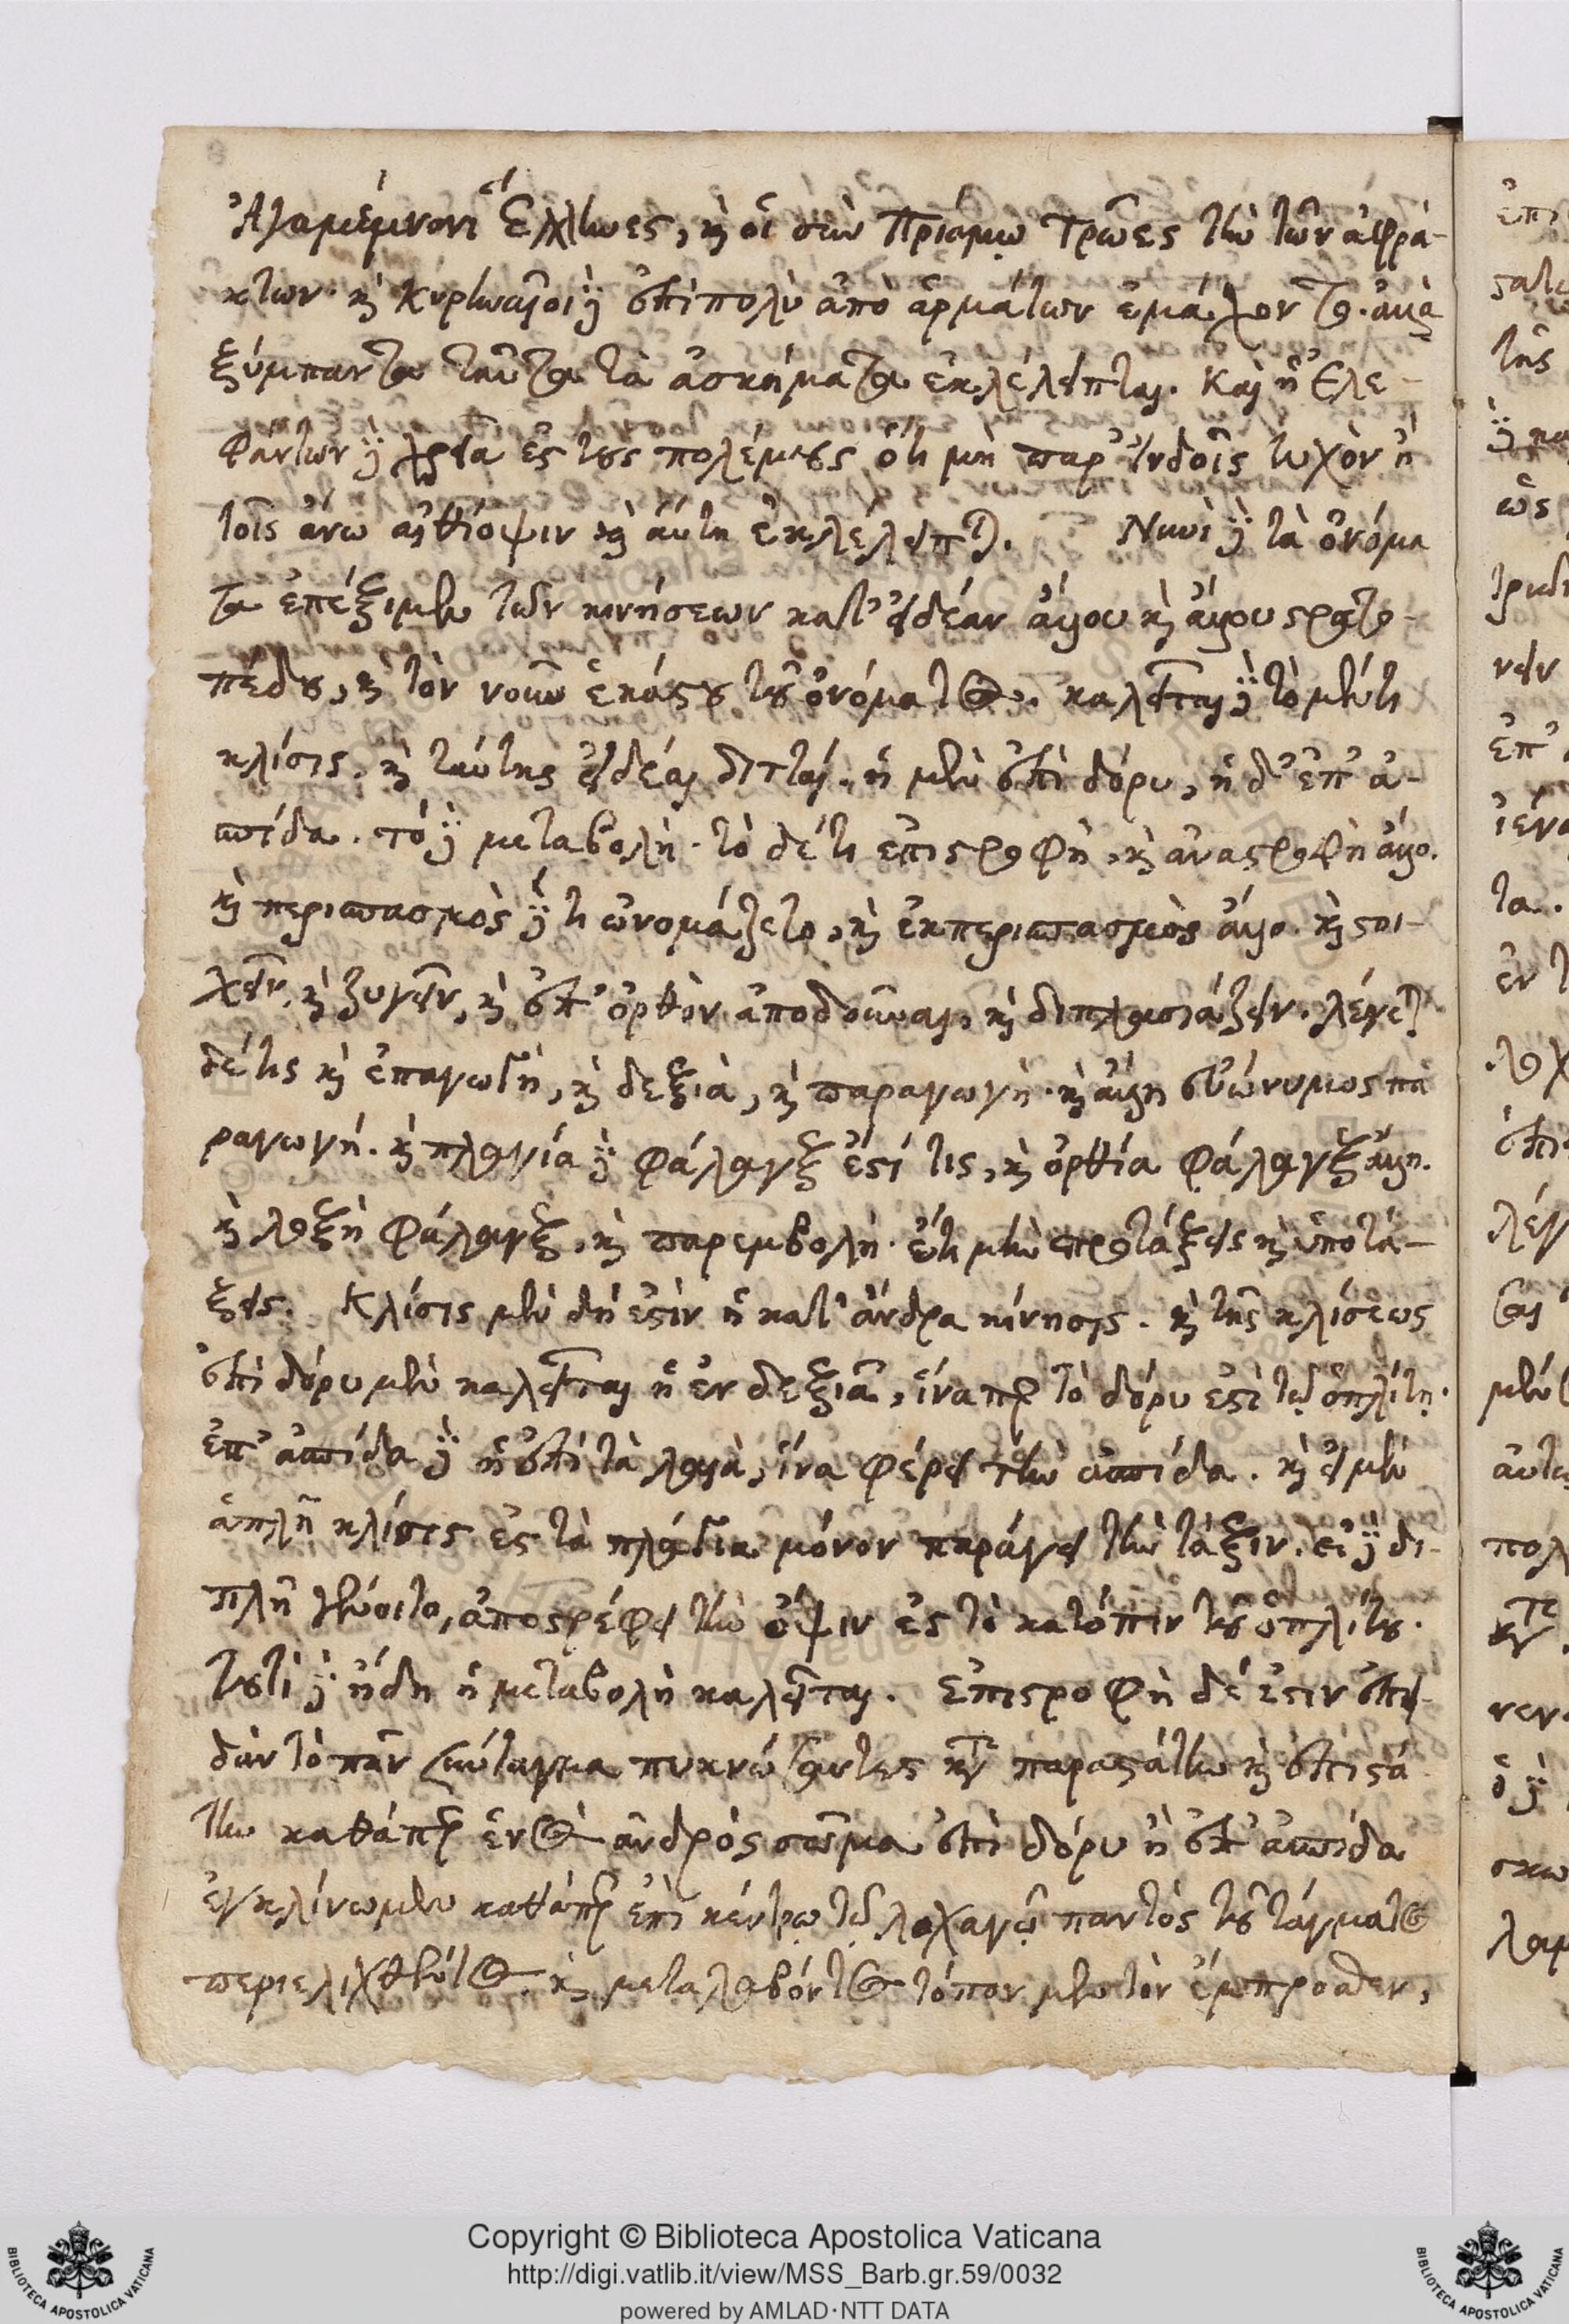 Ἀγαμέμνονι Ἕλληνες, καὶ οἱ σὺν Πριάμῳ Τρῶες τὴν τῶν ἀφρά-
κτων· καὶ Κυρηναῖοι δὲ ἐπὶ πολὺ ἀπὸ ἁρμάτων ἐμάχοντο. ἀλλὰ
ξύμπαντα ταῦτα τὰ ἀσκήματα ἐκλέλειπται. Καὶ ἡ Ἐλε-
φάντων δὲ χρεία ἐς τοὺς πολέμους ὅτι μὴ παρ' Ἰνδοῖς τυχὸν ἢ
τοῖς ἄνω αἰθίοψιν καὶ αὐτὴ ἐκλέλειπται. Νυνὶ δὲ τὰ ὀνόμα
τα ἐπέξιμεν τῶν κινήσεων κατ' εἰδέαν ἄλλου καὶ ἄλλου στρατο-
πέδου, καὶ τὸν νοῦν ἑκάστου τοῦ ὀνόματος. καλεῖται δὲ τὸ μέν τι
κλίσις. καὶ ταύτης εἰδέαι διτταί. ἡ μὲν ἐπὶ δόρυ, ἡ δ' ἐπ' ἀ-
σπίδα. τὸ δὲ μεταβολή· τὸ δέ τι ἐπιστροφὴ, καὶ ἀναστροφὴ ἄλλο.
καὶ περισπασμὸς δέ τι ὠνομάζετο, καὶ ἐκπερισπασμὸς ἄλλο. καὶ στοι-
χεῖν, καὶ ζυγεῖν, καὶ ἐπ' ὀρθὸν ἀποδοῦναι, καὶ διπλασιάζειν. λέγεται
δέ τις καὶ ἐπαγωγὴ, καὶ δεξιὰ, καὶ παραγωγή· καὶ ἄλλη συώνυμος πα
ραγωγή. καὶ πλαγία δὲ φάλαγξ ἐστί τις, καὶ ὀρθία φάλαγξ ἄλλη.
καὶ λοξὴ φάλαγξ, καὶ παρεμβολὴ· ἔτι μὴν προτάξεις καὶ ὑποτά-
ξεις. Κλίσις μὲν δή ἐστιν ἡ κατ' ἄνδρα κίνησις. καὶ τῆς κλίσεως
ἐπὶ δόρυ μὲν καλεῖται ἡ ἐν δεξιᾷ, ἵναπερ τὸ δόρυ ἐστὶ τῷ ὁπλίτῃ.
ἐπ' ἀσπίδα δὲ ἡ ἐπὶ τὰ λαιὰ, ἵνα φέρει τὴν ἀσπίδα. καὶ εἰ μὲν
ἁπλῆ κλίσις ἐς τὰ πλάγια μόνον παράγει τὴν τάξιν. εἰ δὲ δι-
πλῆ γένοιτο, ἀποστρέφει τὴν ὄψιν ἐς τὸ κατόπιν τοῦ ὁπλίτου.
τουτὶ δὲ ἤδη ἡ μεταβολὴ καλεῖται. Ἐπιστροφὴ δέ ἐστιν ἐπει-
δὰν τὸ πᾶν σύνταγμα πυκνώσαντες κατὰ παραστάτην καὶ ἐπιστά
την καθάπερ ἑνὸς ἀνδρὸς σῶμα ἐπὶ δόρυ ἢ ἐπ' ἀσπίδα
ἐγκλίνωμεν καθάπερ ἐπὶ κέντρῳ τῷ λοχαγῷ παντὸς τοῦ τάγματος
περιελιχθέντος. καὶ μεταλαβόντος τόπον μὲν τὸν ἔμπροσθεν,
Copyright © Biblioteca Apostolica Vaticana
http://digi.vatlib.it/view/MSS_Barb.gr.59/0032
powered by AMLAD·NTT DATA
BIBLIOTECA APOSTOLICA VATICANA
BIBLIOTECA APOSTOLICA VATICANA